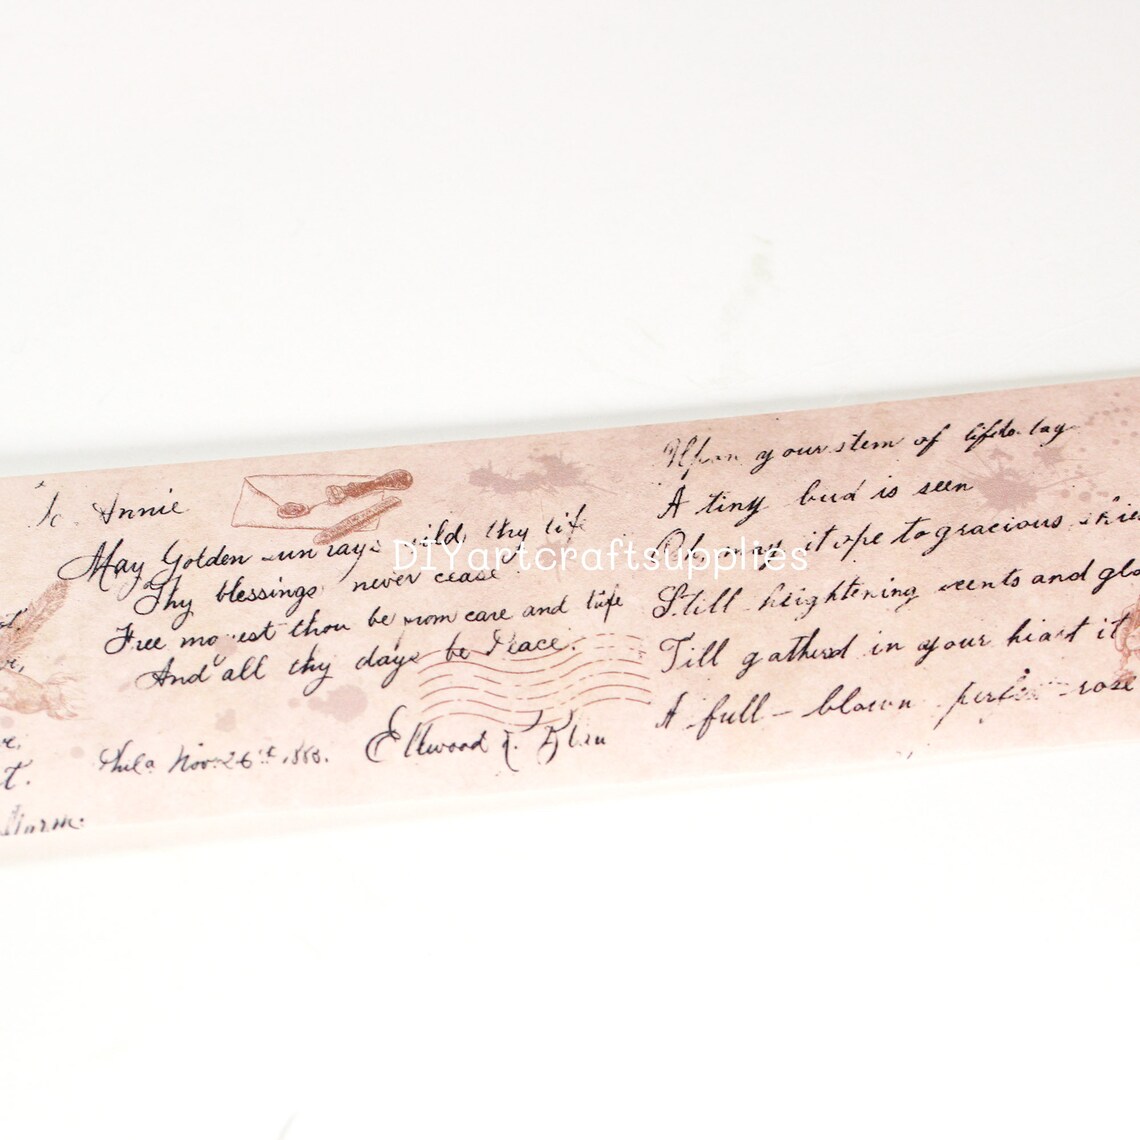 To Annie
May Golden sun rays gild thy life
Thy blessings never cease
Free mayest thou be from care and
And all thy days be Peace.
Phila Nov. 26th 1880.
Ellwood
Upon your stem of life to-day
A tiny bud is seen
Oh, may it ope to gracious
Still heightening scents and
Till gathered in your heart it
A full-blown perfect rose
DIYartcraftsupplies